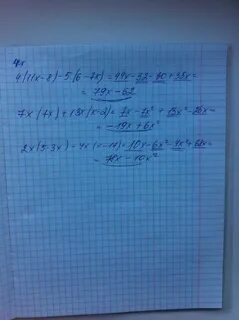 4x
4(11x-8)-5(6-7x)=44x-32-30+35x=
=79x-62
7x(1x)+13x(x-2)=7x-7x²+13x²-26x=
=-19x+6x²
2x(5-3x)-4x(x-17)=10x-6x²-4x²+68x=
=78x-10x²